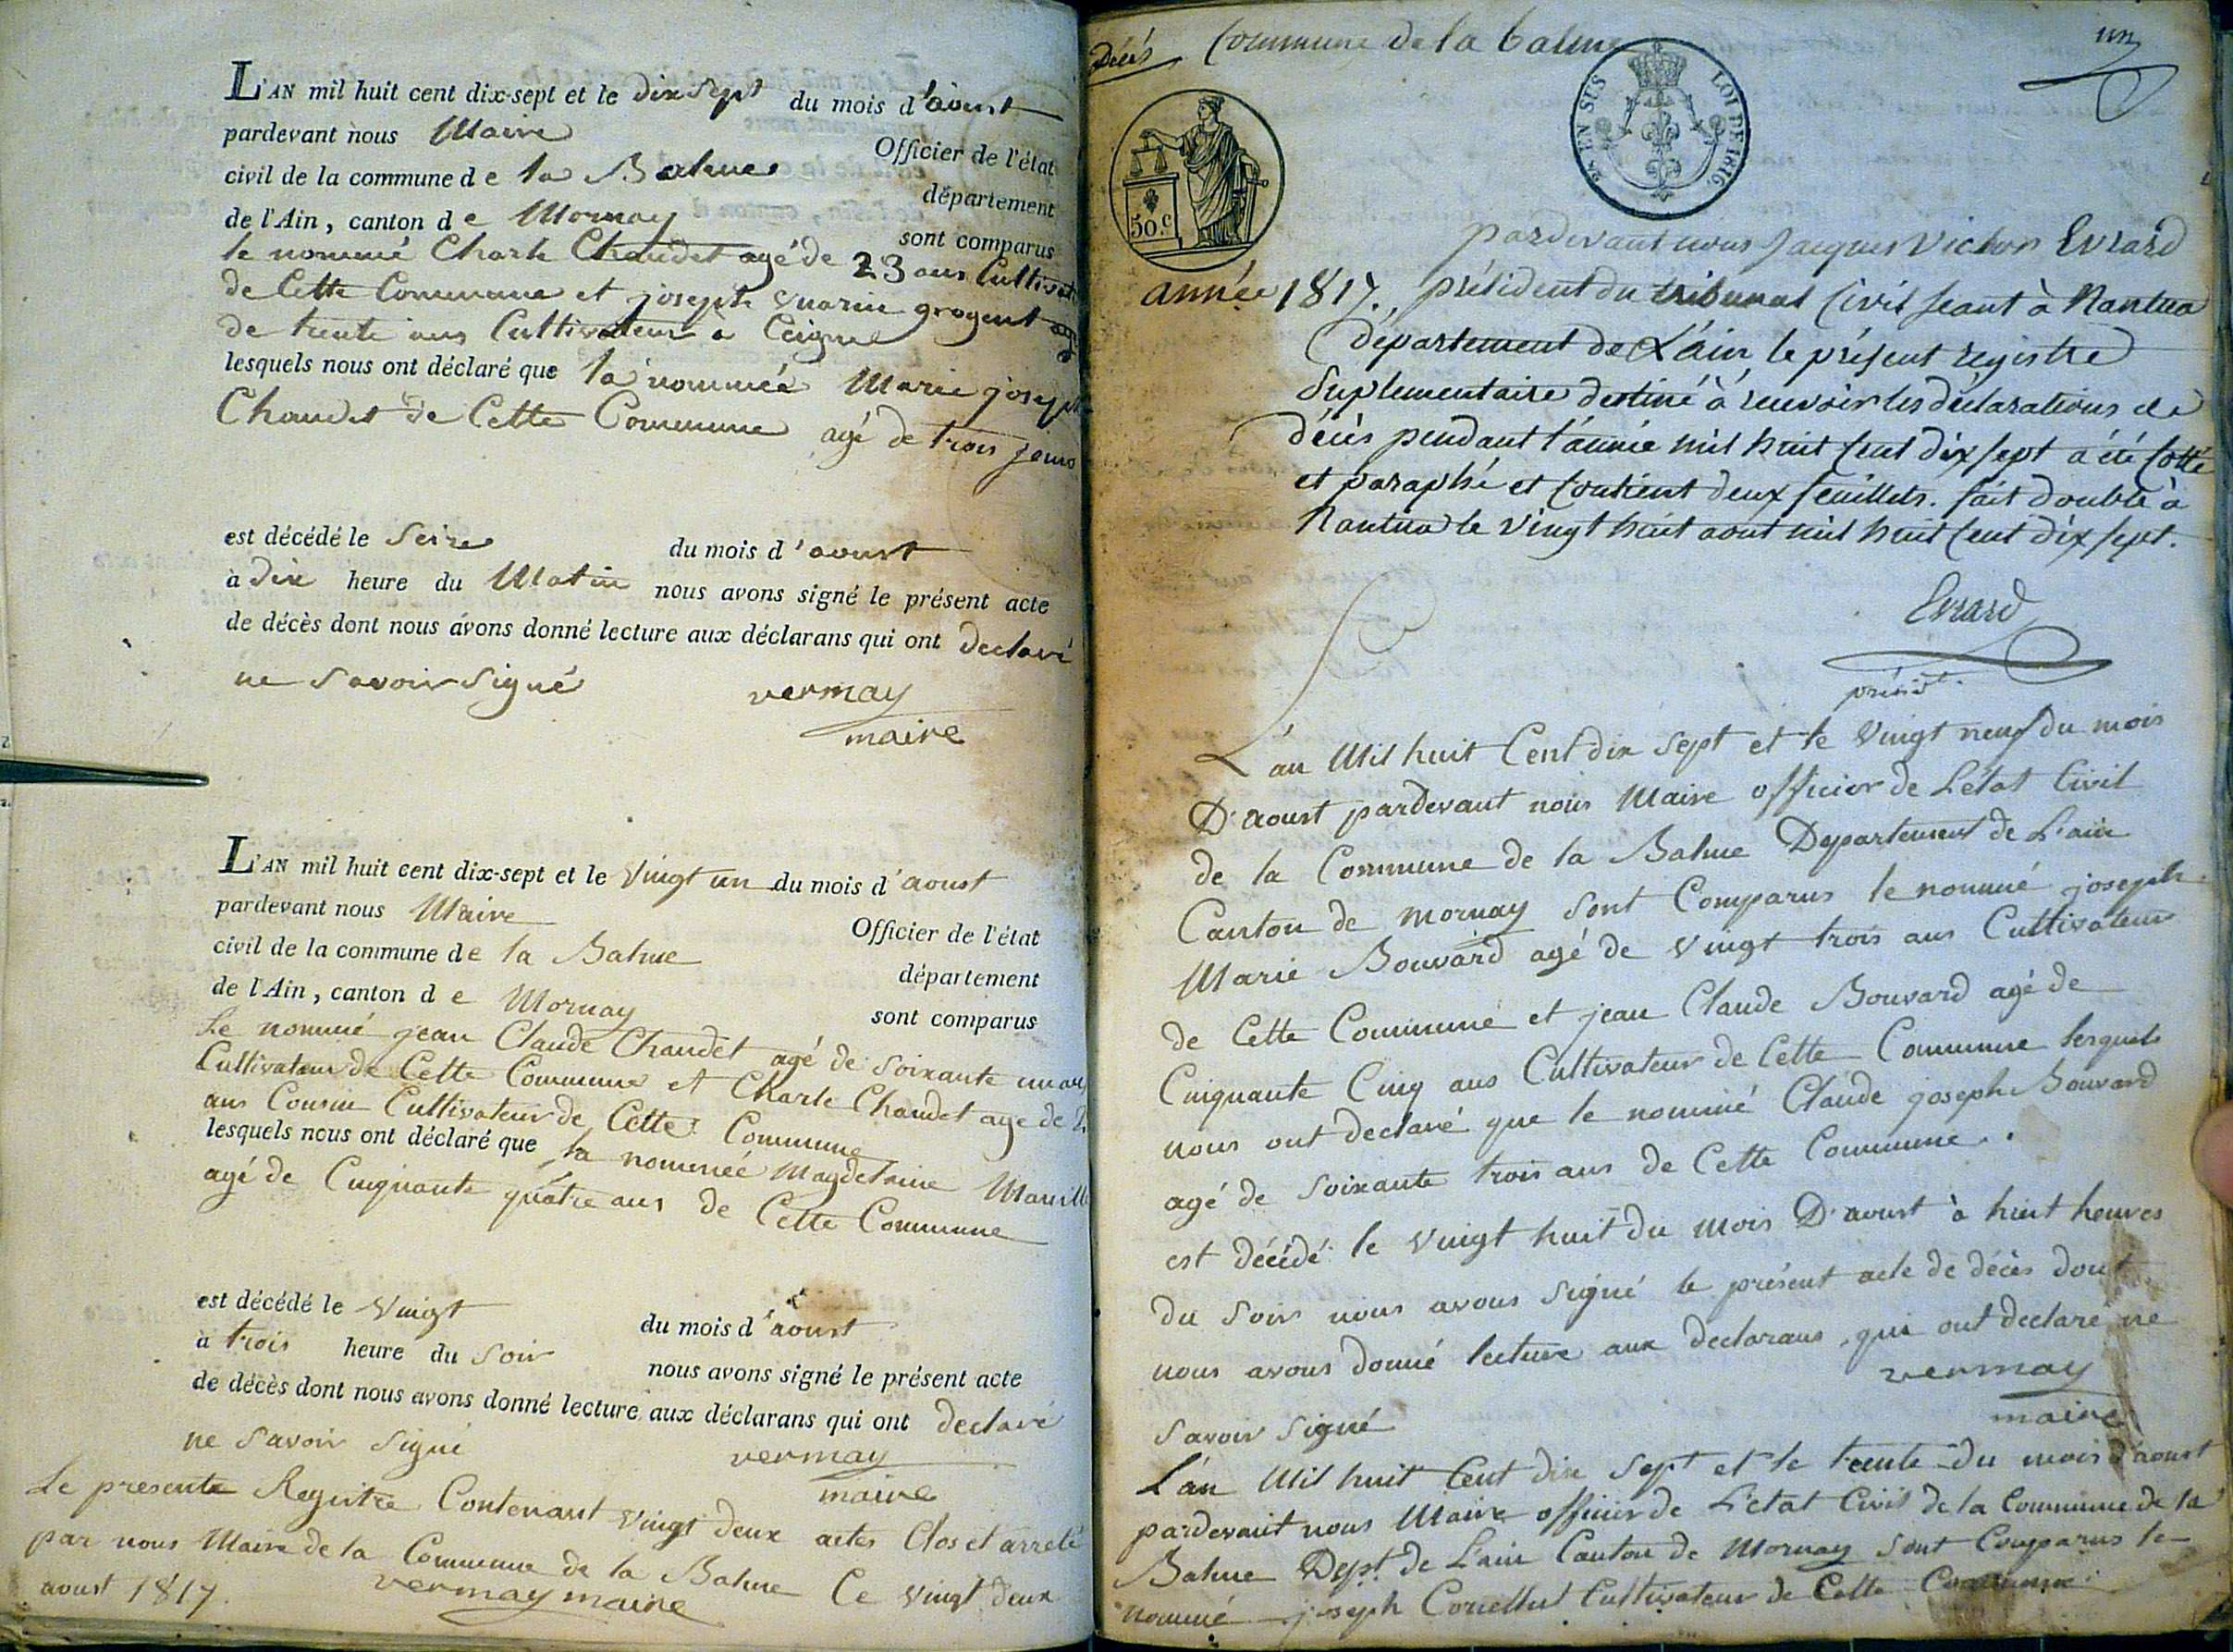 L'AN mil huit cent dix-sept et le dix sept du mois d'aoust
pardevant nous Maire Officier de l'état
civil de la commune de la Balme département
de l'Ain, canton de Mornay sont comparus
le nommé Charle Chaudet agé de 23 ans Cultivat
de Cette Commune et joseph marie grogent
de trente ans Cultivateur a Ceigne
lesquels nous ont déclaré que la nommée Marie joseph
Chaudet de Cette Commune agé de trois jours
est décédé le Seize du mois d'aoust
à dix heure du Matin nous avons signé le présent acte
de décès dont nous avons donné lecture aux déclarans qui ont declaré
ne Savoir Signé vermay
maire
L'AN mil huit cent dix-sept et le Vingt un du mois d'aoust
pardevant nous Maire Officier de l'état
civil de la commune de la Balme département
de l'Ain, canton de Mornay sont comparus
Le nommé jean Claude Chaudet agé de Soixante un an
Cultivateur de Cette Commune et Charle Chaudet age de 2
ans Cousin Cultivateur de Cette Commune
lesquels nous ont déclaré que la nommée Magdelaine
agé de Cinquante quatre ans de Cette Commune
est décédé le Vingt du mois d'aoust
à trois heure du Soir nous avons signé le présent acte
de décès dont nous avons donné lecture aux déclarans qui ont declaré
ne Savoir Signé vermay
maire
Le presente Registre Contenant Vingt deux actes Clos et arreté
par nous Maire de la Commune de la Balme Ce Vingt deux
aoust 1817. vermay maire
Décés Commune de la balme un
EN SUS LOI DE 1816.
50.c
pardevant nous Jacques Victor Evrard
année 1817. président du tribunal Civil seant à Nantua
département de L'ain, le présent registre
Suplementaire destiné à recevoir les déclarations de
décès pendant l'année mil huit Cent dix sept a été Cotté
et paraphé et Contient deux feuillets. fait double à
Nantua le vingt huit aout mil huit Cent dix sept.
Evrard
présidt.
L'an Mil huit Cent dix Sept et le Vingt neuf du mois
D'aoust pardevant nous Maire officier de L'état Civil
de la Commune de la Balme Departement de L'ain
Canton de Mornay Sont Comparus le nommé joseph
Marie Bouvard agé de Vingt trois ans Cultivateur
de Cette Commune et jean Claude Bouvard agé de
Cinquante Cinq ans Cultivateur de Cette Commune lesquels
nous ont declaré que le nommé Claude joseph Bouvard
agé de Soixante trois ans de Cette Commune.
est décédé le Vingt huit du mois D'aoust à huit heures
du Soir nous avons Signé le présent acte de décès dont
nous avons donné lecture aux declarans qui ont declaré ne
Savoir Signé vermay
maire
L'an Mil huit Cent dix Sept et le trente du mois d'aoust
pardevant nous Maire officier de L'etat Civil de la Commune de la
Balme Dept. de L'ain Canton de Mornay Sont Comparus le
nommé joseph Cultivateur de Cette Commune